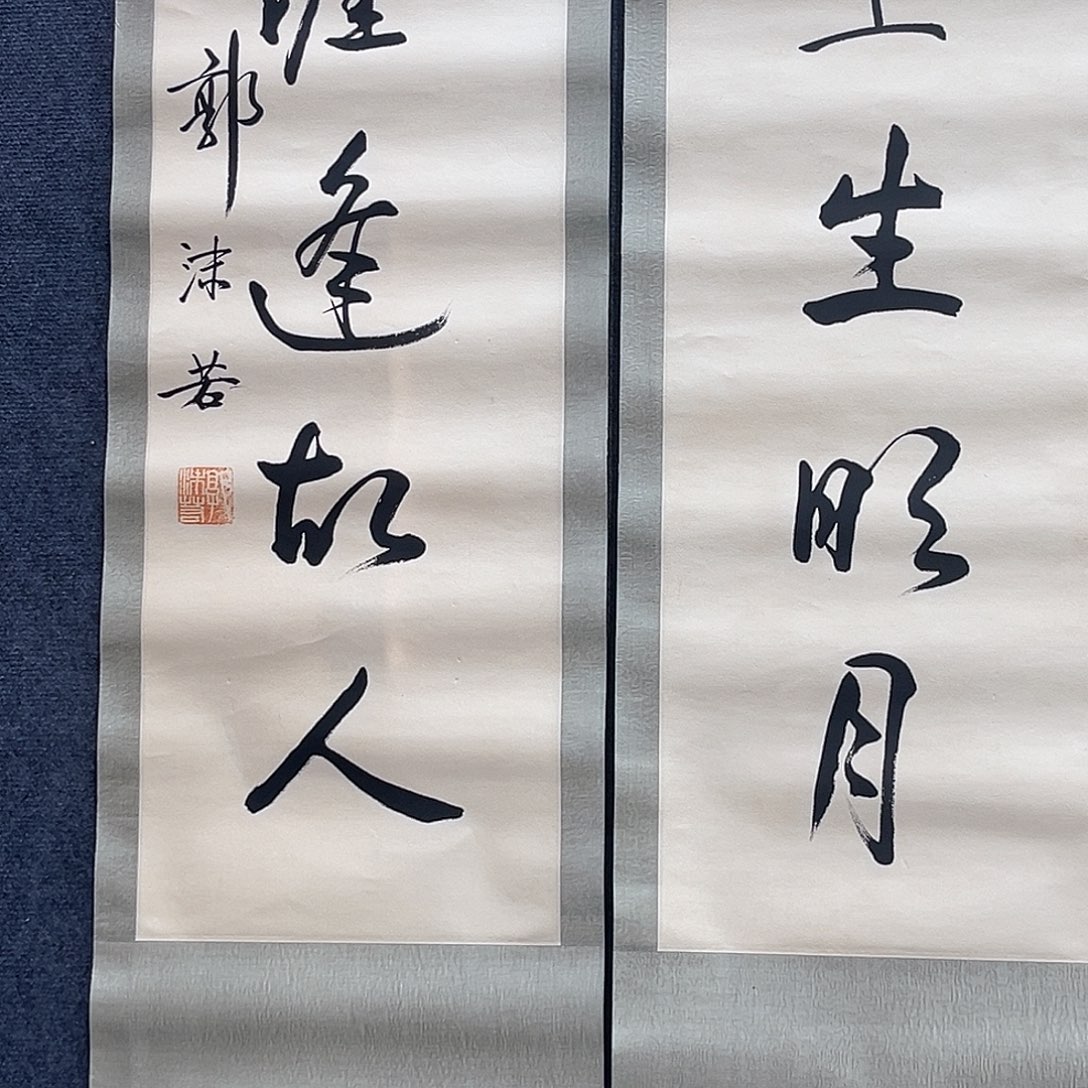 生明月
逢故人
郭沫若